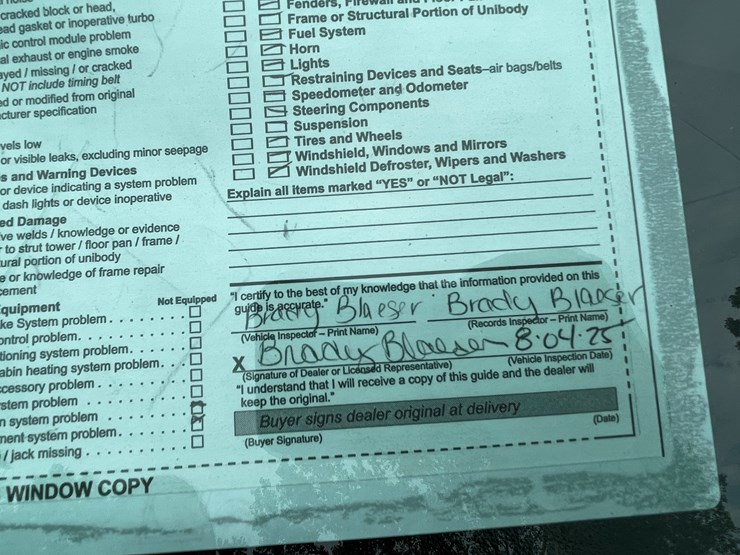 cracked block or head,
ad gasket or inoperative turbo
ic control module problem
al exhaust or engine smoke
ayed / missing / or cracked
NOT include timing belt
ed or modified from original
cturer specification
vels low
or visible leaks, excluding minor seepage
s and Warning Devices
or device indicating a system problem
dash lights or device inoperative
ed Damage
ve welds / knowledge or evidence
r to strut tower / floor pan / frame /
ural portion of unibody
e or knowledge of frame repair
cement
quipment
Not Equipped
ke System problem.
ontrol problem.
tioning system problem.
abin heating system problem.
ccessory problem.
stem problem
n system problem
ment system problem.
/ jack missing
WINDOW COPY
Fenders, Firewall
Frame or Structural Portion of Unibody
Fuel System
Horn
Lights
Restraining Devices and Seats–air bags/belts
Speedometer and Odometer
Steering Components
Suspension
Tires and Wheels
Windshield, Windows and Mirrors
Windshield Defroster, Wipers and Washers
Explain all items marked "YES" or "NOT Legal":
"I certify to the best of my knowledge that the information provided on this
guide is accurate."
Brady Blaeser Brady Blaeser
(Vehicle Inspector – Print Name) (Records Inspector – Print Name)
X Brady Blaeser 8·04·25
(Signature of Dealer or Licensed Representative) (Vehicle Inspection Date)
"I understand that I will receive a copy of this guide and the dealer will
keep the original."
Buyer signs dealer original at delivery
(Buyer Signature) (Date)